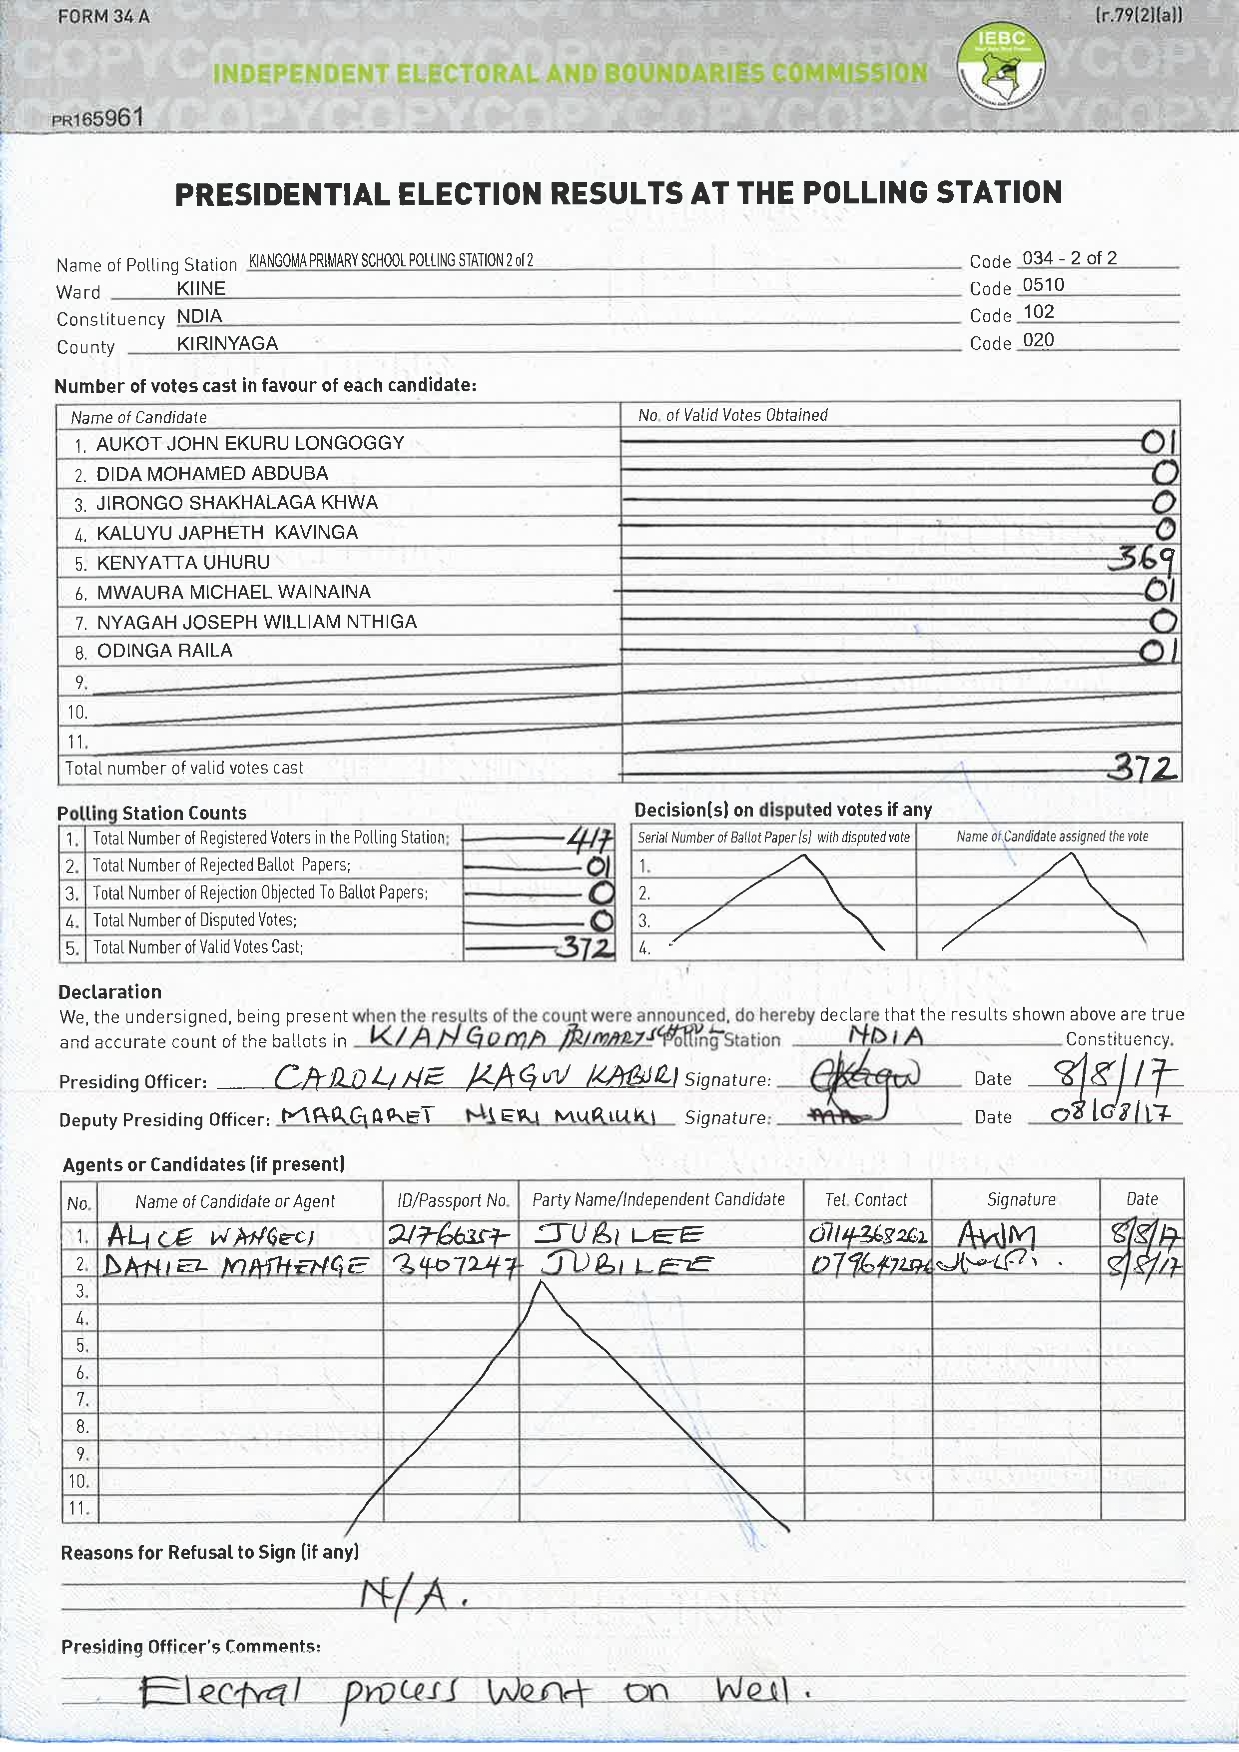 FORM 34 A
(r.79(2)(a))
IEBC
INDEPENDENT ELECTORAL AND BOUNDARIES COMMISSION
PR165961
PRESIDENTIAL ELECTION RESULTS AT THE POLLING STATION
Name of Polling Station KIANGOMA PRIMARY SCHOOL POLLING STATION 2 of 2 Code 034 - 2 of 2
Ward KIINE Code 0510
Constituency NDIA Code 102
County KIRINYAGA Code 020
Number of votes cast in favour of each candidate:
Name of Candidate No. of Valid Votes Obtained
1. AUKOT JOHN EKURU LONGOGGY 01
2. DIDA MOHAMED ABDUBA 0
3. JIRONGO SHAKHALAGA KHWA 0
4. KALUYU JAPHETH KAVINGA 0
5. KENYATTA UHURU 369
6. MWAURA MICHAEL WAINAINA 01
7. NYAGAH JOSEPH WILLIAM NTHIGA 0
8. ODINGA RAILA 01
9.
10.
11.
Total number of valid votes cast 372
Polling Station Counts
1. Total Number of Registered Voters in the Polling Station; 417
2. Total Number of Rejected Ballot Papers; 01
3. Total Number of Rejection Objected To Ballot Papers; 0
4. Total Number of Disputed Votes; 0
5. Total Number of Valid Votes Cast; 372
Decision(s) on disputed votes if any
Serial Number of Ballot Paper (s) with disputed vote Name of Candidate assigned the vote
1.
2.
3.
4.
Declaration
We, the undersigned, being present when the results of the count were announced, do hereby declare that the results shown above are true
and accurate count of the ballots in KIANGOMA PRIMARY SCHOOL Polling Station NDIA Constituency.
Presiding Officer: CAROLINE KAGWI KABURI Signature: Date 8/8/17
Deputy Presiding Officer: MARGARET NJERI MURIUKI Signature: Date 08/08/17
Agents or Candidates (if present)
No. Name of Candidate or Agent ID/Passport No. Party Name/Independent Candidate Tel. Contact Signature Date
1. ALICE WANGECI 21766357 JUBILEE 0114368262 AWM 8/8/17
2. DANIEL MATHENGE 3407247 JUBILEE 8/8/17
3.
4.
5.
6.
7.
8.
9.
10.
11.
Reasons for Refusal to Sign (if any)
N/A.
Presiding Officer's Comments:
Electral process went on well.